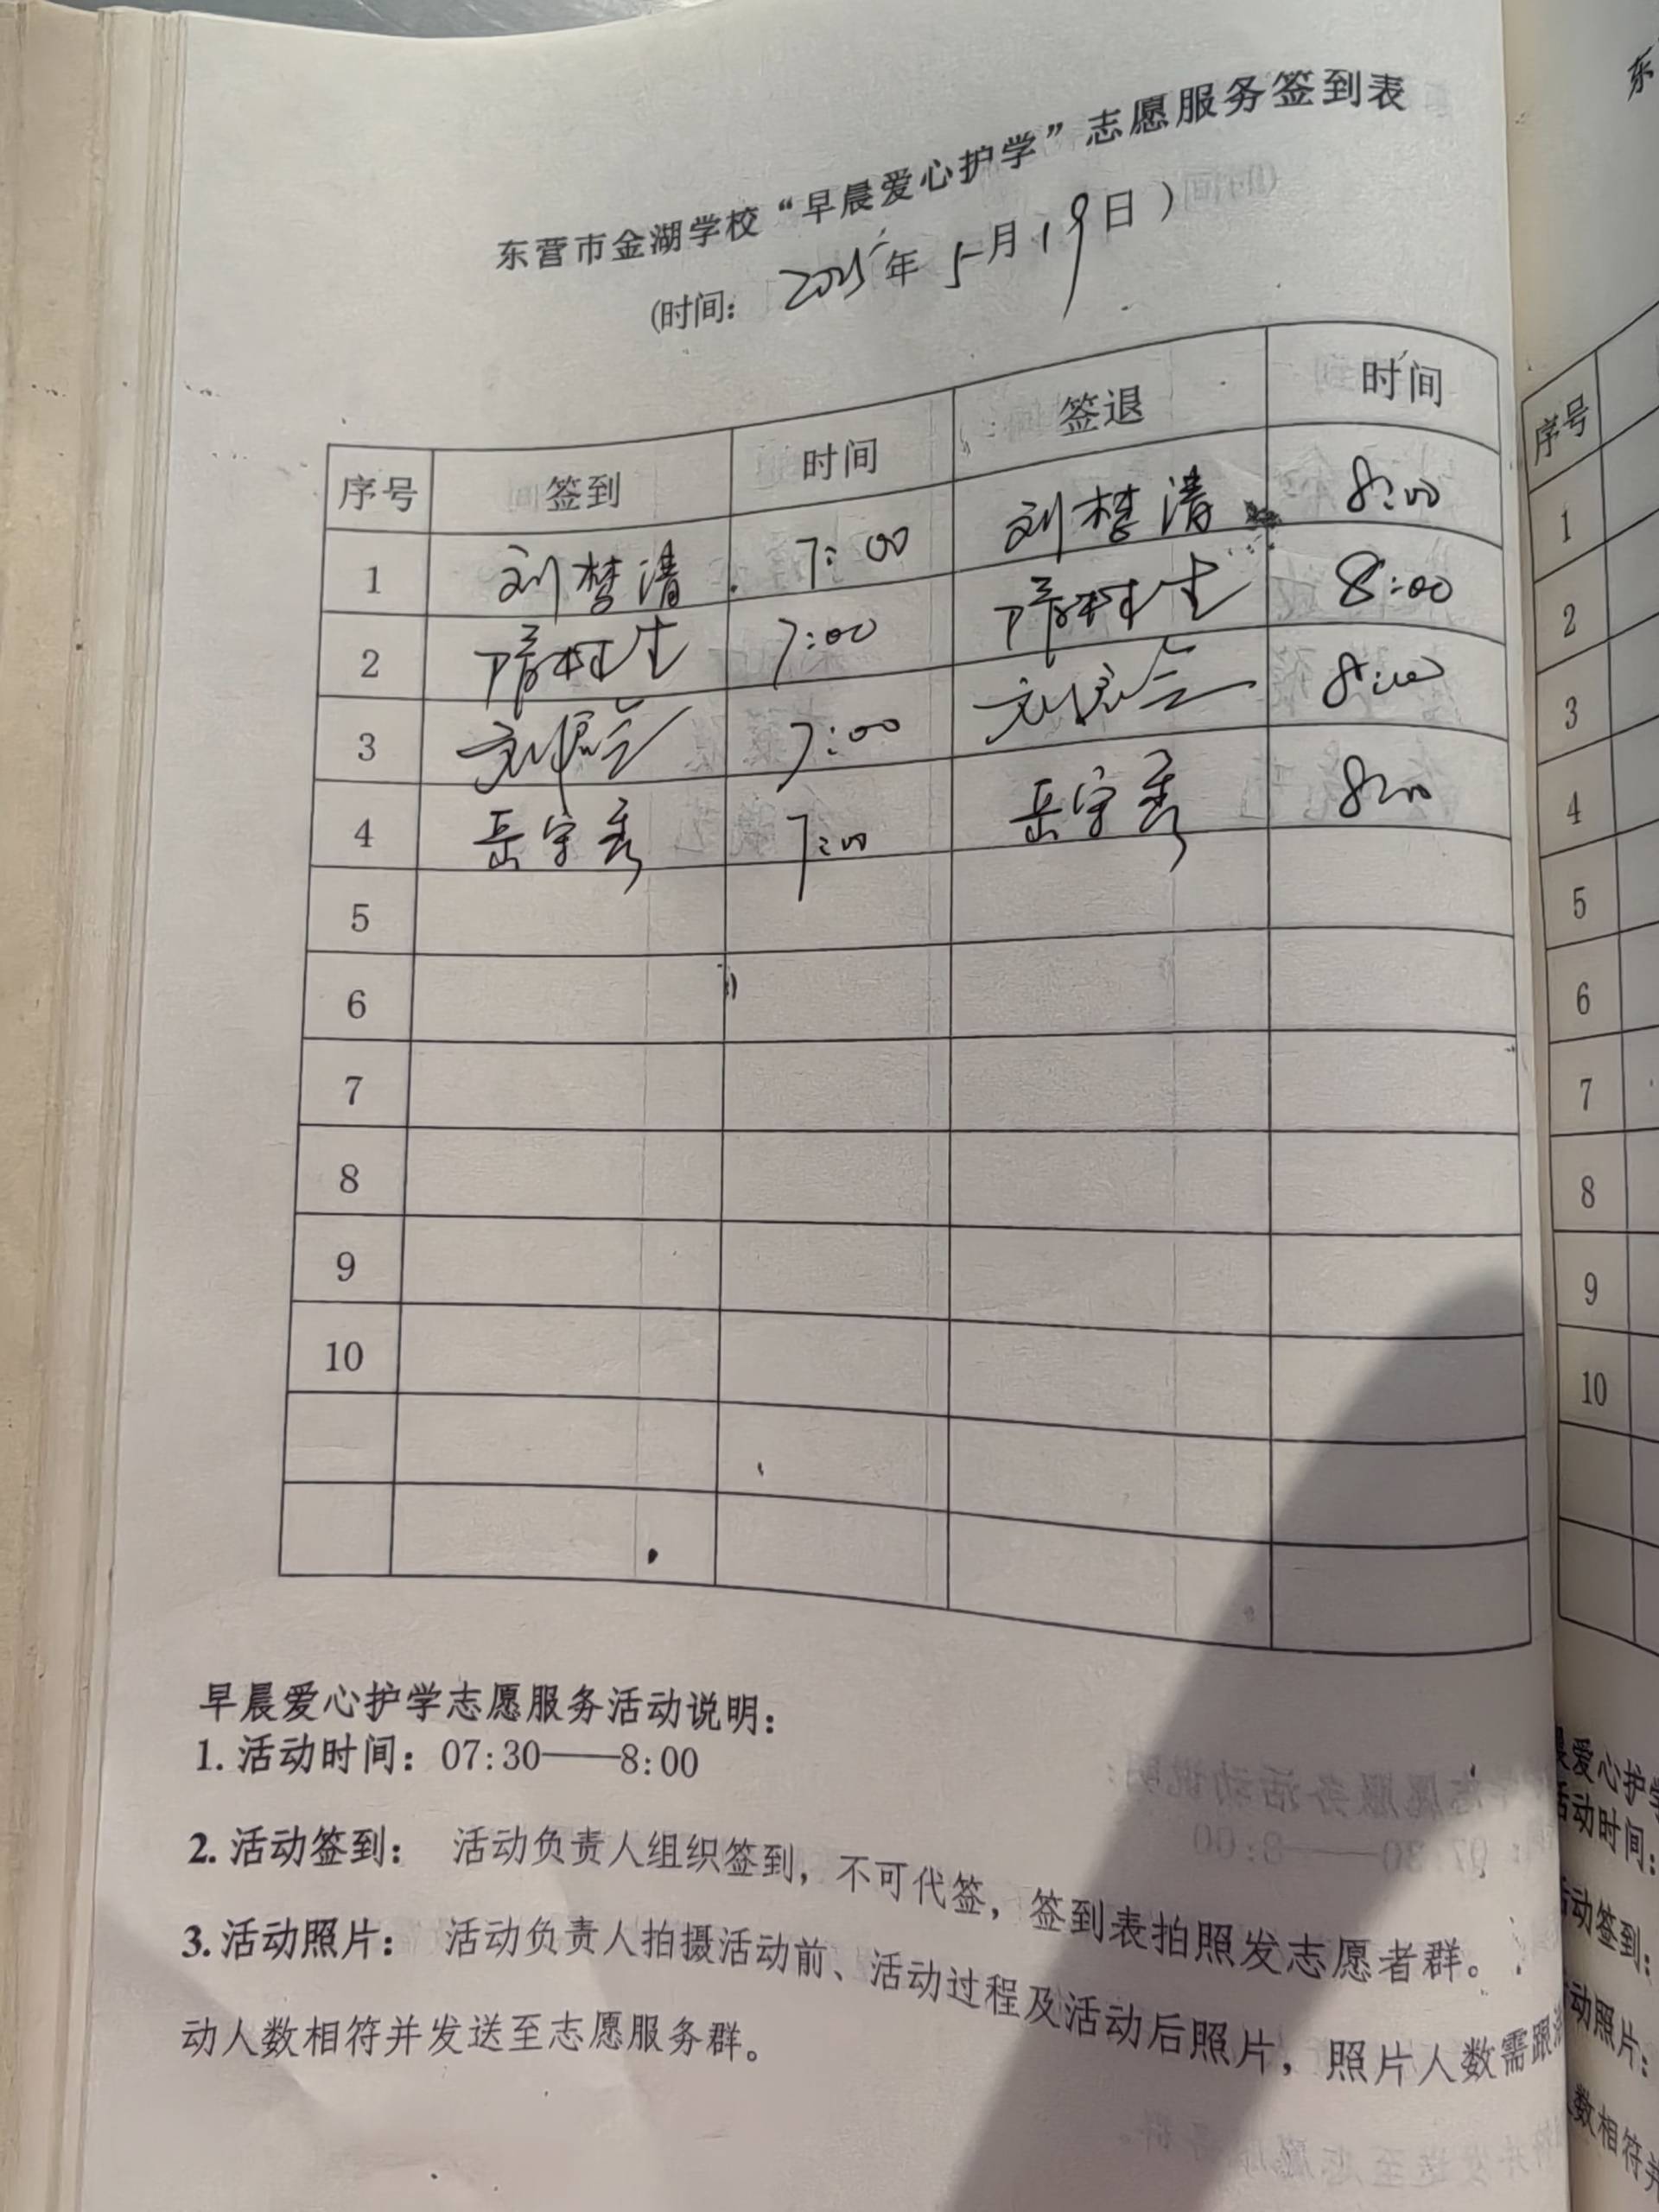 东营市金湖学校“早晨爱心护学”志愿服务签到表
(时间: 2025年5月19日)
序号 签到 时间 签退 时间
1 刘梦清 7:00 刘梦清 8:00
2 7:00 8:00
3 7:00 8:00
4 岳宇秀 7:00 岳宇秀 8:00
5
6
7
8
9
10
早晨爱心护学志愿服务活动说明:
1. 活动时间: 07:30——8:00
2. 活动签到: 活动负责人组织签到, 不可代签, 签到表拍照发志愿者群。
3. 活动照片: 活动负责人拍摄活动前、活动过程及活动后照片, 照片人数需跟活
动人数相符并发送至志愿服务群。
东
序号
1
2
3
4
5
6
7
8
9
10
晨爱心护学
活动时间:
活动签到:
动照片:
数相符并